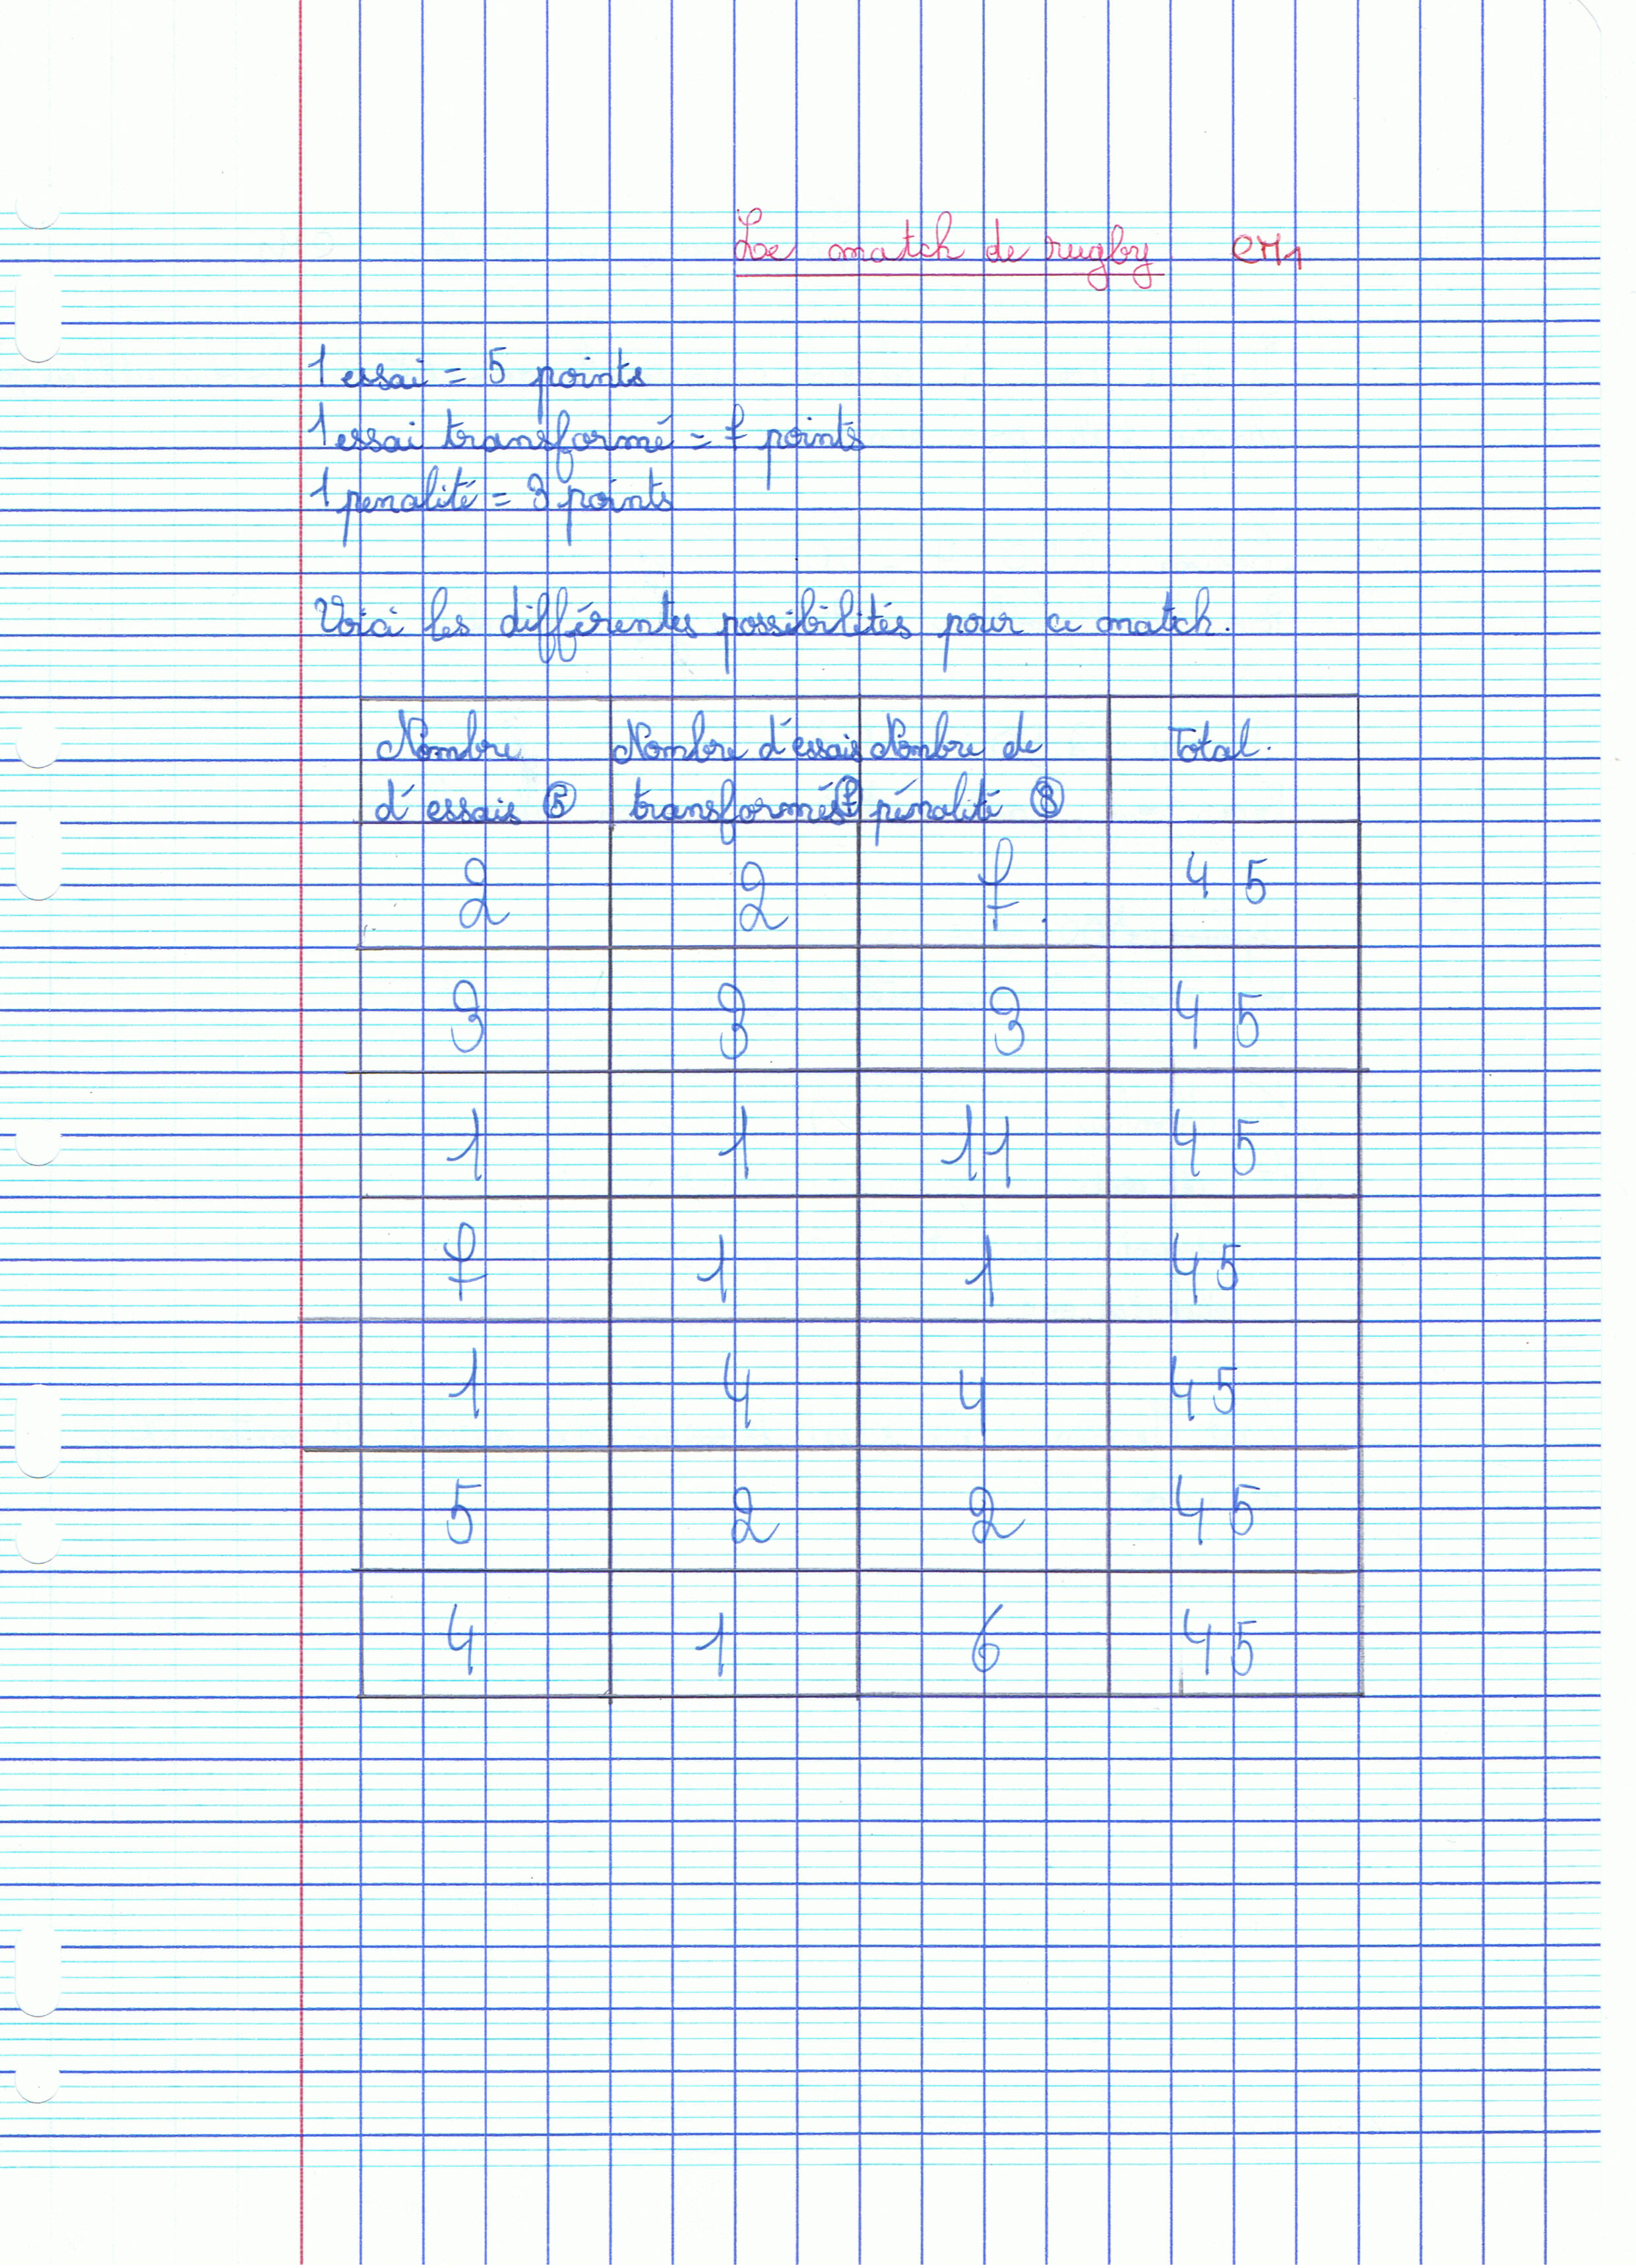 Le match de rugby CM1
1 essai = 5 points
1 essai transformé = 7 points
1 penalité = 3 points
Voici les différentes possibilités pour ce match.
Nombre d'essais 5 | Nombre d'essais transformés 7 | Nombre de pénalité 3 | Total.
2 2 7. 45
3 3 3 45
1 1 11 45
7 1 1 45
1 4 4 45
5 2 2 45
4 1 6 45